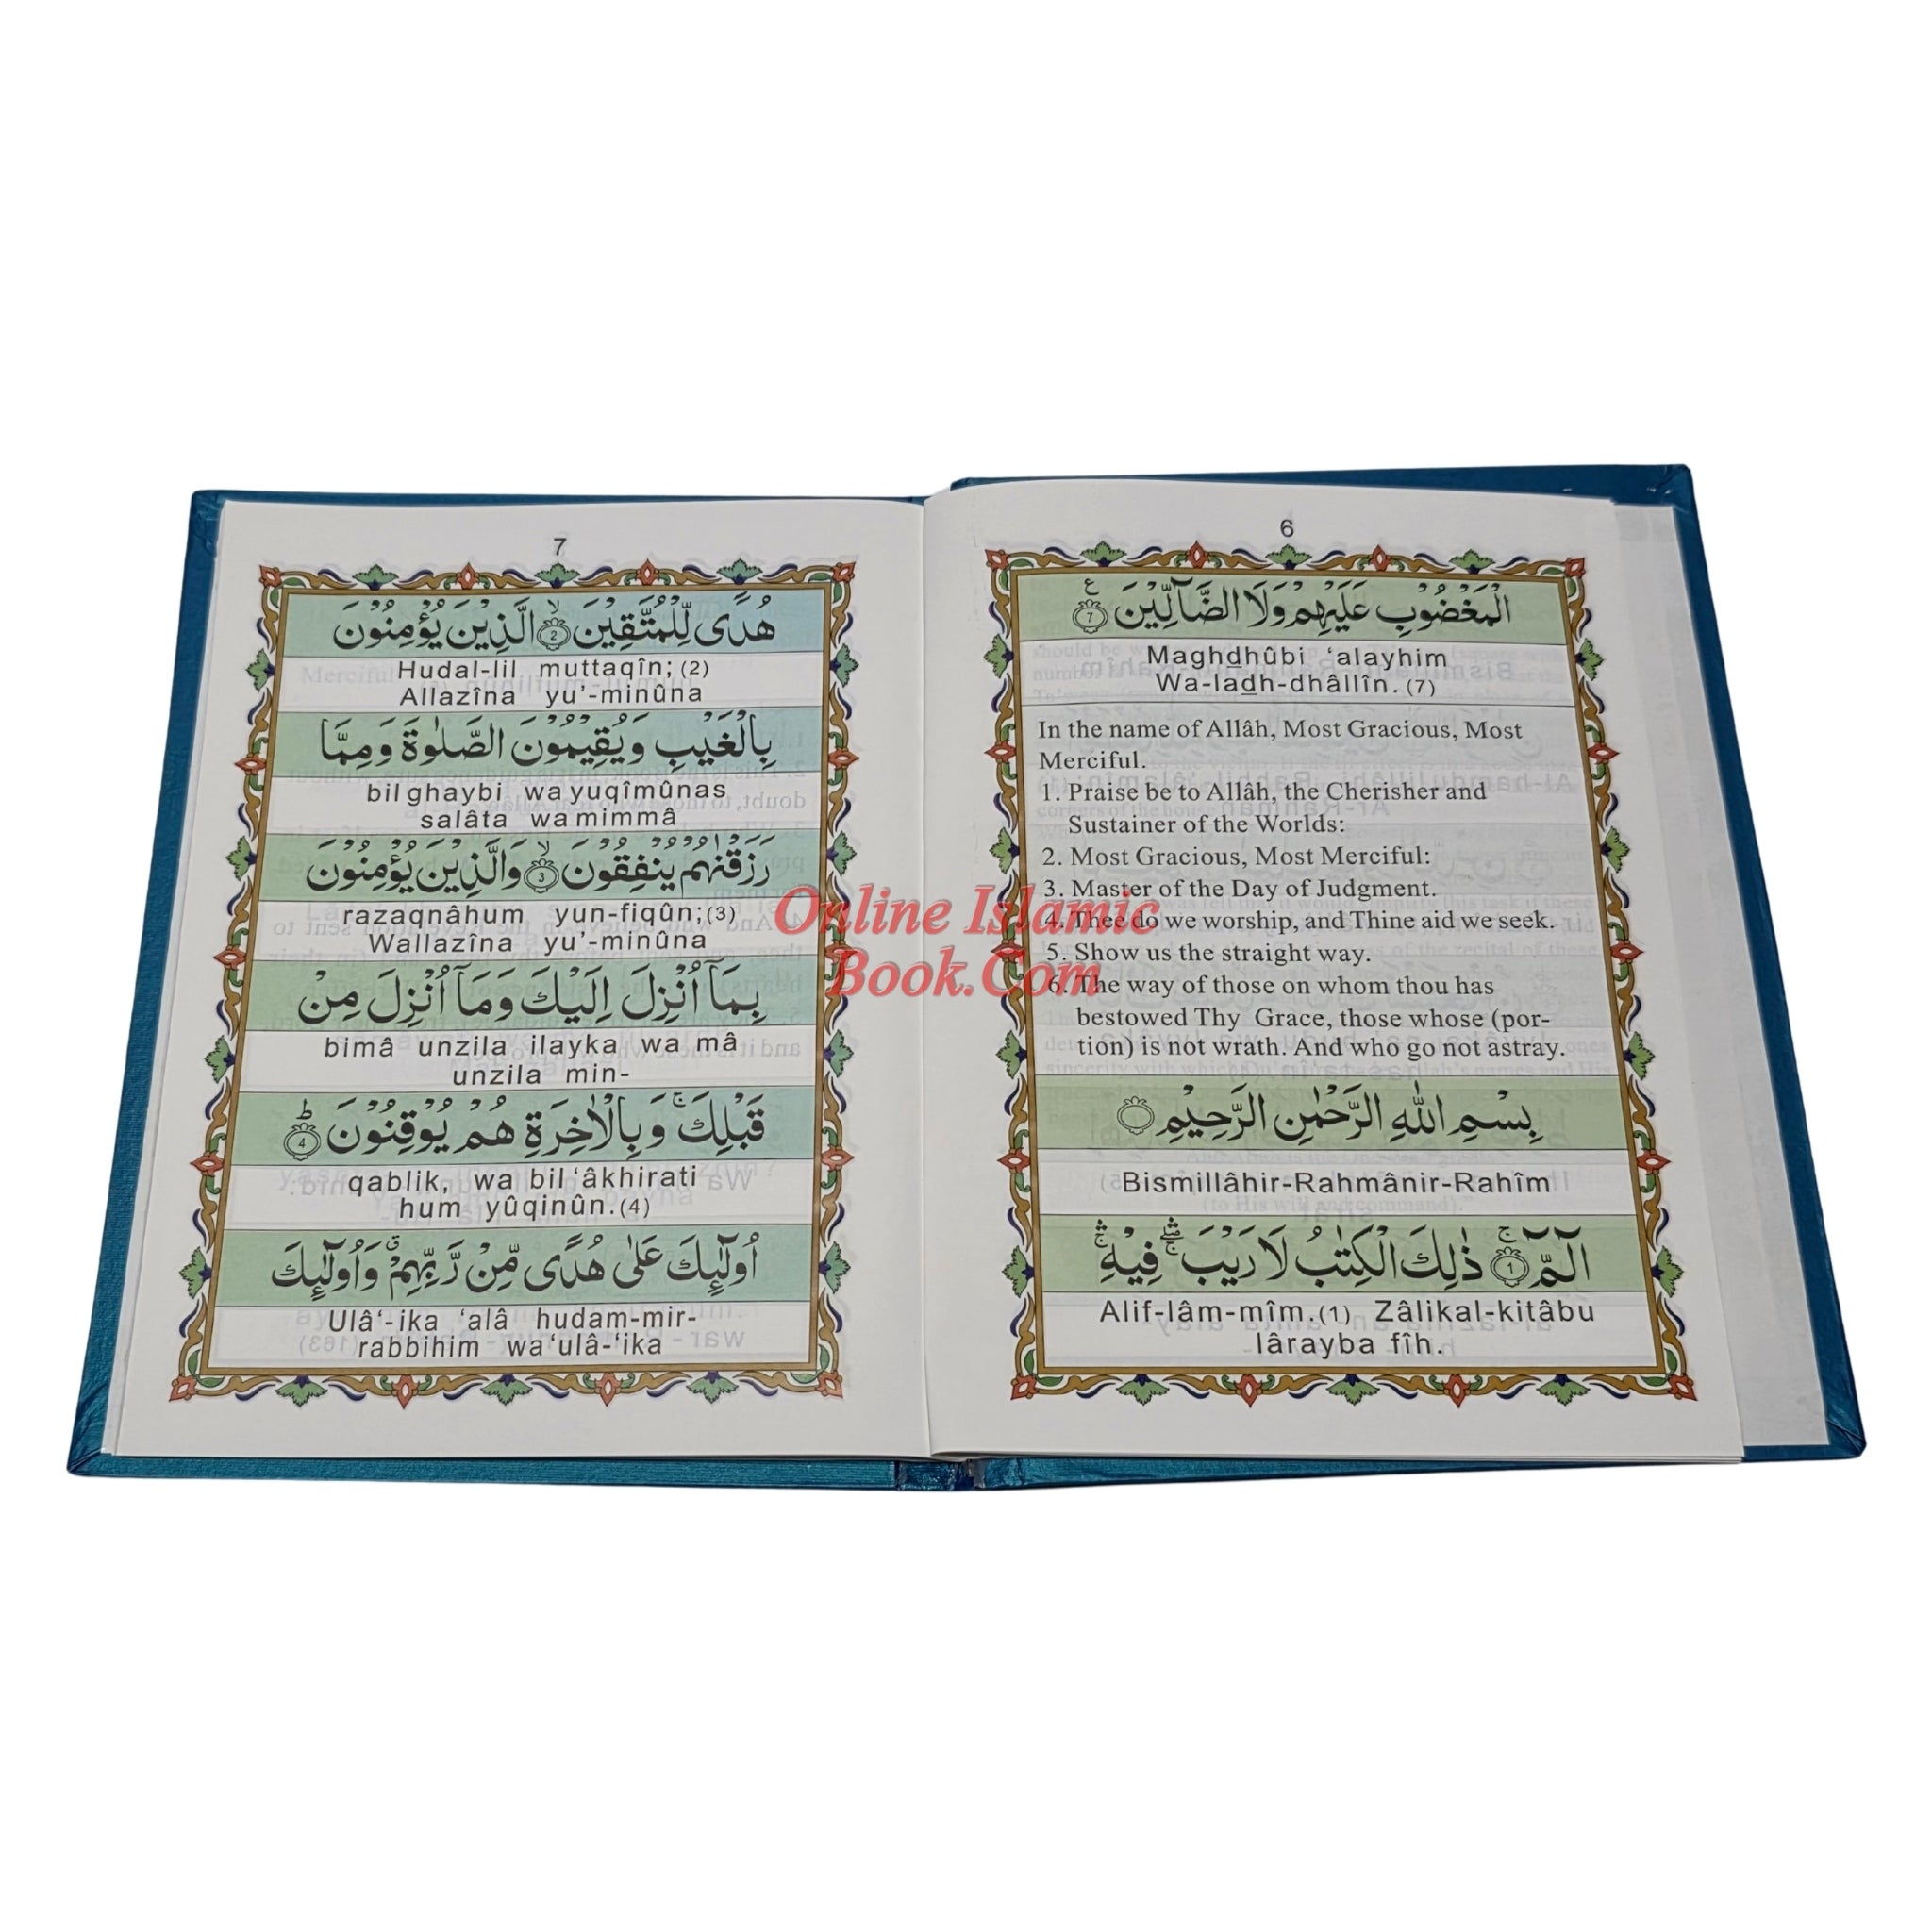 6
الْمَغْضُوْبِ عَلَيْهِمْ وَلَا الضَّآلِّيْنَ ع 7
Maghdhûbi ‘alayhim
Wa-ladh-dhâllîn. (7)
In the name of Allâh, Most Gracious, Most
Merciful.
1. Praise be to Allâh, the Cherisher and
Sustainer of the Worlds:
2. Most Gracious, Most Merciful:
3. Master of the Day of Judgment.
4. Thee do we worship, and Thine aid we seek.
5. Show us the straight way.
6. The way of those on whom thou has
bestowed Thy Grace, those whose (por-
tion) is not wrath. And who go not astray.
بِسْمِ اللهِ الرَّحْمٰنِ الرَّحِيْمِ
Bismillâhir-Rahmânir-Rahîm
الٓمّٓ ۚ 1 ذٰلِكَ الْكِتٰبُ لَا رَيْبَ ۛ فِيْهِ ۛ
Alif-lâm-mîm.(1) Zâlikal-kitâbu
lârayba fîh.
7
هُدًى لِّلْمُتَّقِيْنَ ۙ 2 الَّذِيْنَ يُؤْمِنُوْنَ
Hudal-lil muttaqîn; (2)
Allazîna yu’-minûna
بِالْغَيْبِ وَيُقِيْمُوْنَ الصَّلٰوةَ وَمِمَّا
bil ghaybi wa yuqîmûnas
salâta wa mimmâ
رَزَقْنٰهُمْ يُنْفِقُوْنَ ۙ 3 وَالَّذِيْنَ يُؤْمِنُوْنَ
razaqnâhum yun-fiqûn;(3)
Wallazîna yu’-minûna
بِمَآ اُنْزِلَ اِلَيْكَ وَمَآ اُنْزِلَ مِنْ
bimâ unzila ilayka wa mâ
unzila min-
قَبْلِكَ ۚ وَبِالْاٰخِرَةِ هُمْ يُوْقِنُوْنَ ؕ 4
qablik, wa bil ‘âkhirati
hum yûqinûn.(4)
اُولٰٓئِكَ عَلٰى هُدًى مِّنْ رَّبِّهِمْ ۗ وَاُولٰٓئِكَ
Ulâ‘-ika ‘alâ hudam-mir-
rabbihim wa ‘ulâ-‘ika
Online Islamic
Book.Com